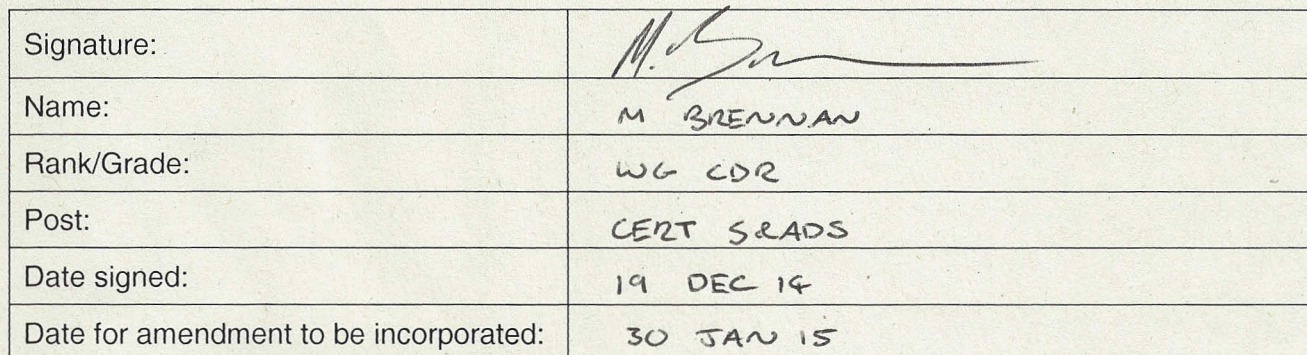 Signature: M. Brennan
Name: M BRENNAN
Rank/Grade: WG CDR
Post: CERT S&ADS
Date signed: 19 DEC 14
Date for amendment to be incorporated: 30 JAN 15